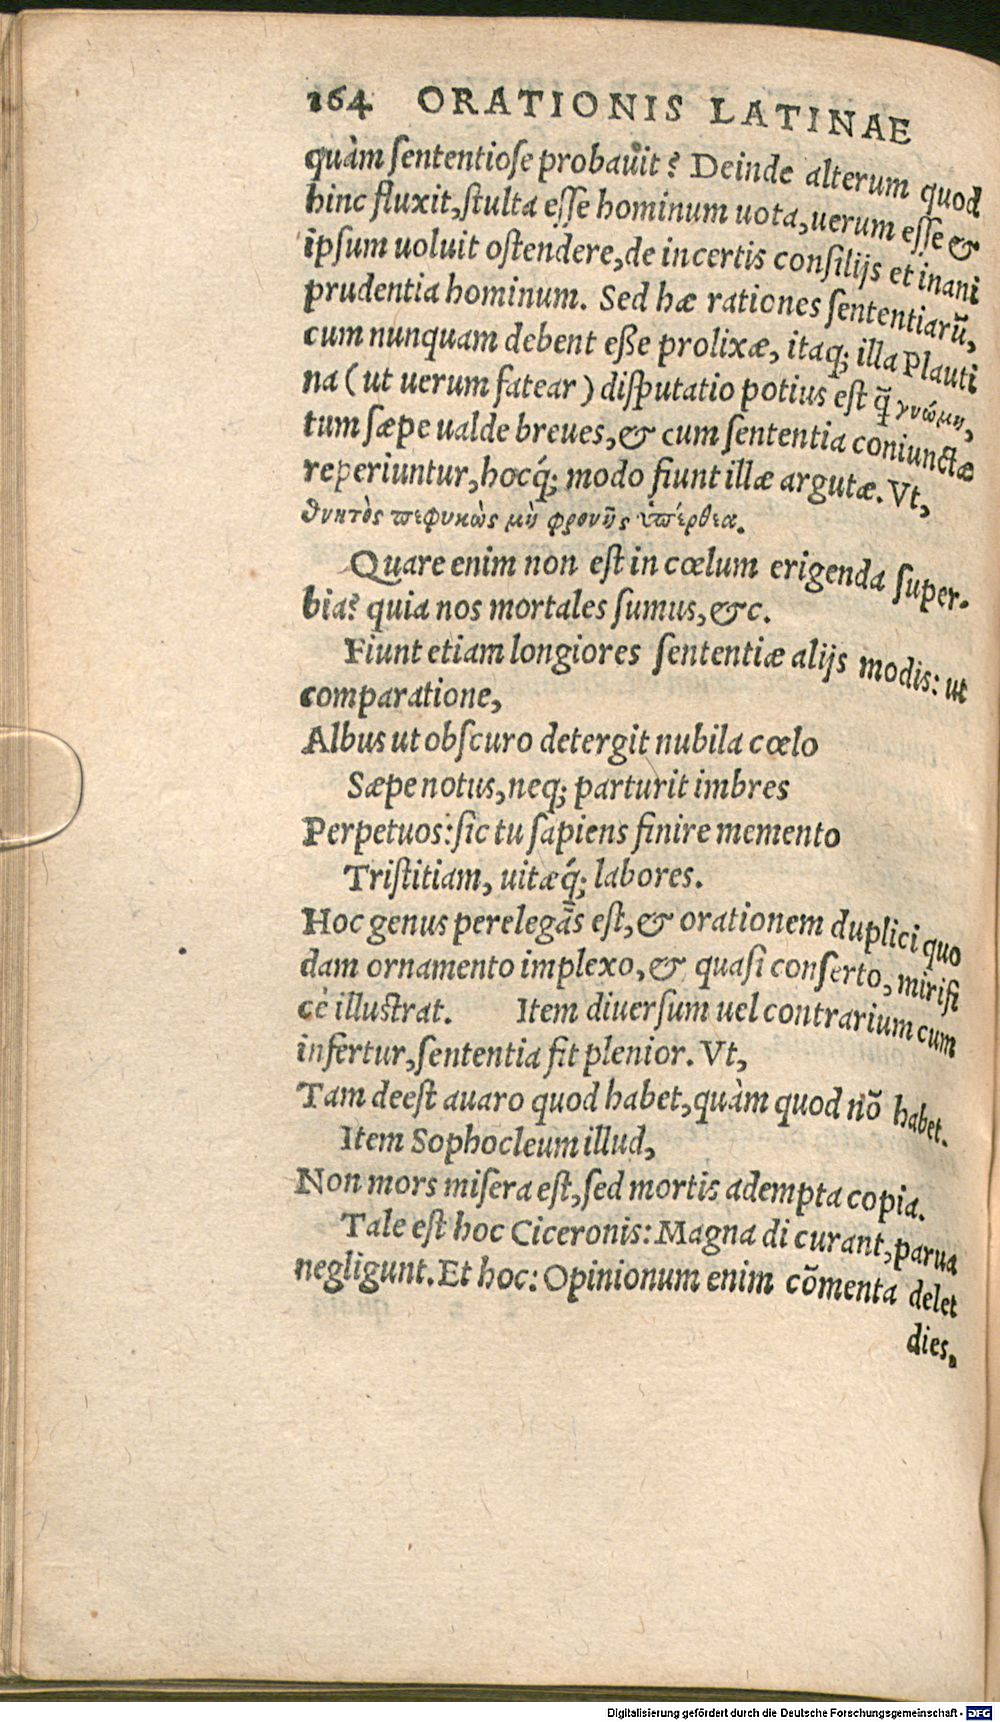 164 ORATIONIS LATINAE
quàm sententiose probauit? Deinde alterum quod
hinc fluxit, stulta esse hominum uota, uerum esse &
ipsum uoluit ostendere, de incertis consilijs et inani
prudentia hominum. Sed hæ rationes sententiarũ,
cum nunquam debent eße prolixæ, itaq; illa Plauti
na (ut uerum fatear) disputatio potius est q̃ γνώμη,
tum sæpe ualde breues, & cum sententia coniunctæ
reperiuntur, hocq́; modo fiunt illæ argutæ. Vt,
θνητὸς πεφυκὼς μὴ φρονῇς ὑπέρθεα.
Quare enim non est in cœlum erigenda super-
bia? quia nos mortales sumus, &c.
Fiunt etiam longiores sententiæ alijs modis: ut
comparatione,
Albus ut obscuro detergit nubila cœlo
Sæpe notus, neq; parturit imbres
Perpetuos: sic tu sapiens finire memento
Tristitiam, uitæq́; labores.
Hoc genus perelegãs est, & orationem duplici quo
dam ornamento implexo, & quasi conserto, mirifi
cè illustrat. Item diuersum uel contrarium cum
infertur, sententia fit plenior. Vt,
Tam deest auaro quod habet, quàm quod nõ habet.
Item Sophocleum illud,
Non mors misera est, sed mortis adempta copia.
Tale est hoc Ciceronis: Magna di curant, parua
negligunt. Et hoc: Opinionum enim cõmenta delet
dies,
Digitalisierung gefördert durch die Deutsche Forschungsgemeinschaft - DFG